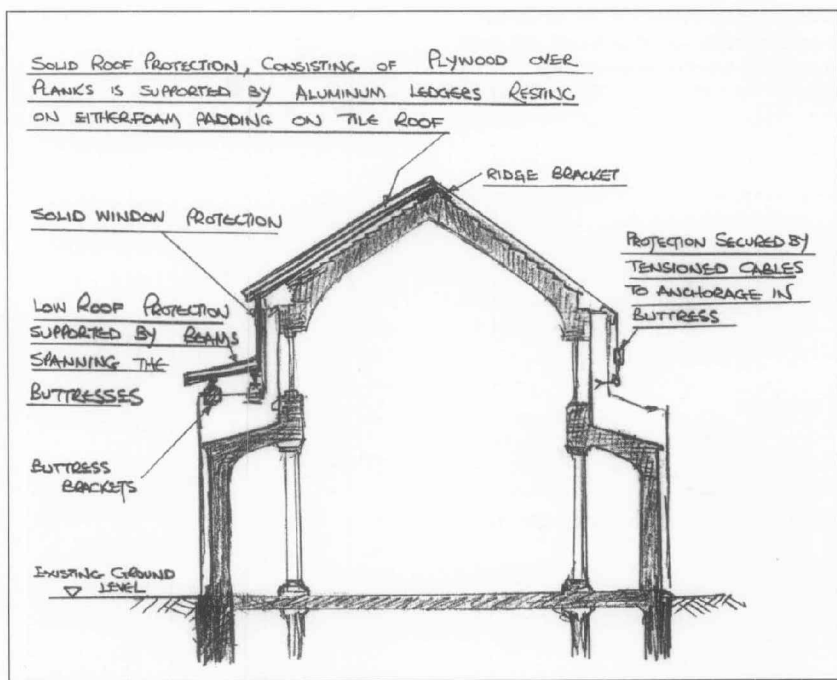 SOLID ROOF PROTECTION, CONSISTING OF PLYWOOD OVER
PLANKS IS SUPPORTED BY ALUMINUM LEDGERS RESTING
ON EITHERFOAM PADDING ON TILE ROOF
RIDGE BRACKET
SOLID WINDOW PROTECTION
PROTECTION SECURED BY
TENSIONED CABLES
TO ANCHORAGE IN
BUTTRESS
LOW ROOF PROTECTION
SUPPORTED BY BEAMS
SPANNING THE
BUTTRESSES
BUTTRESS
BRACKETS
EXISTING GROUND
LEVEL